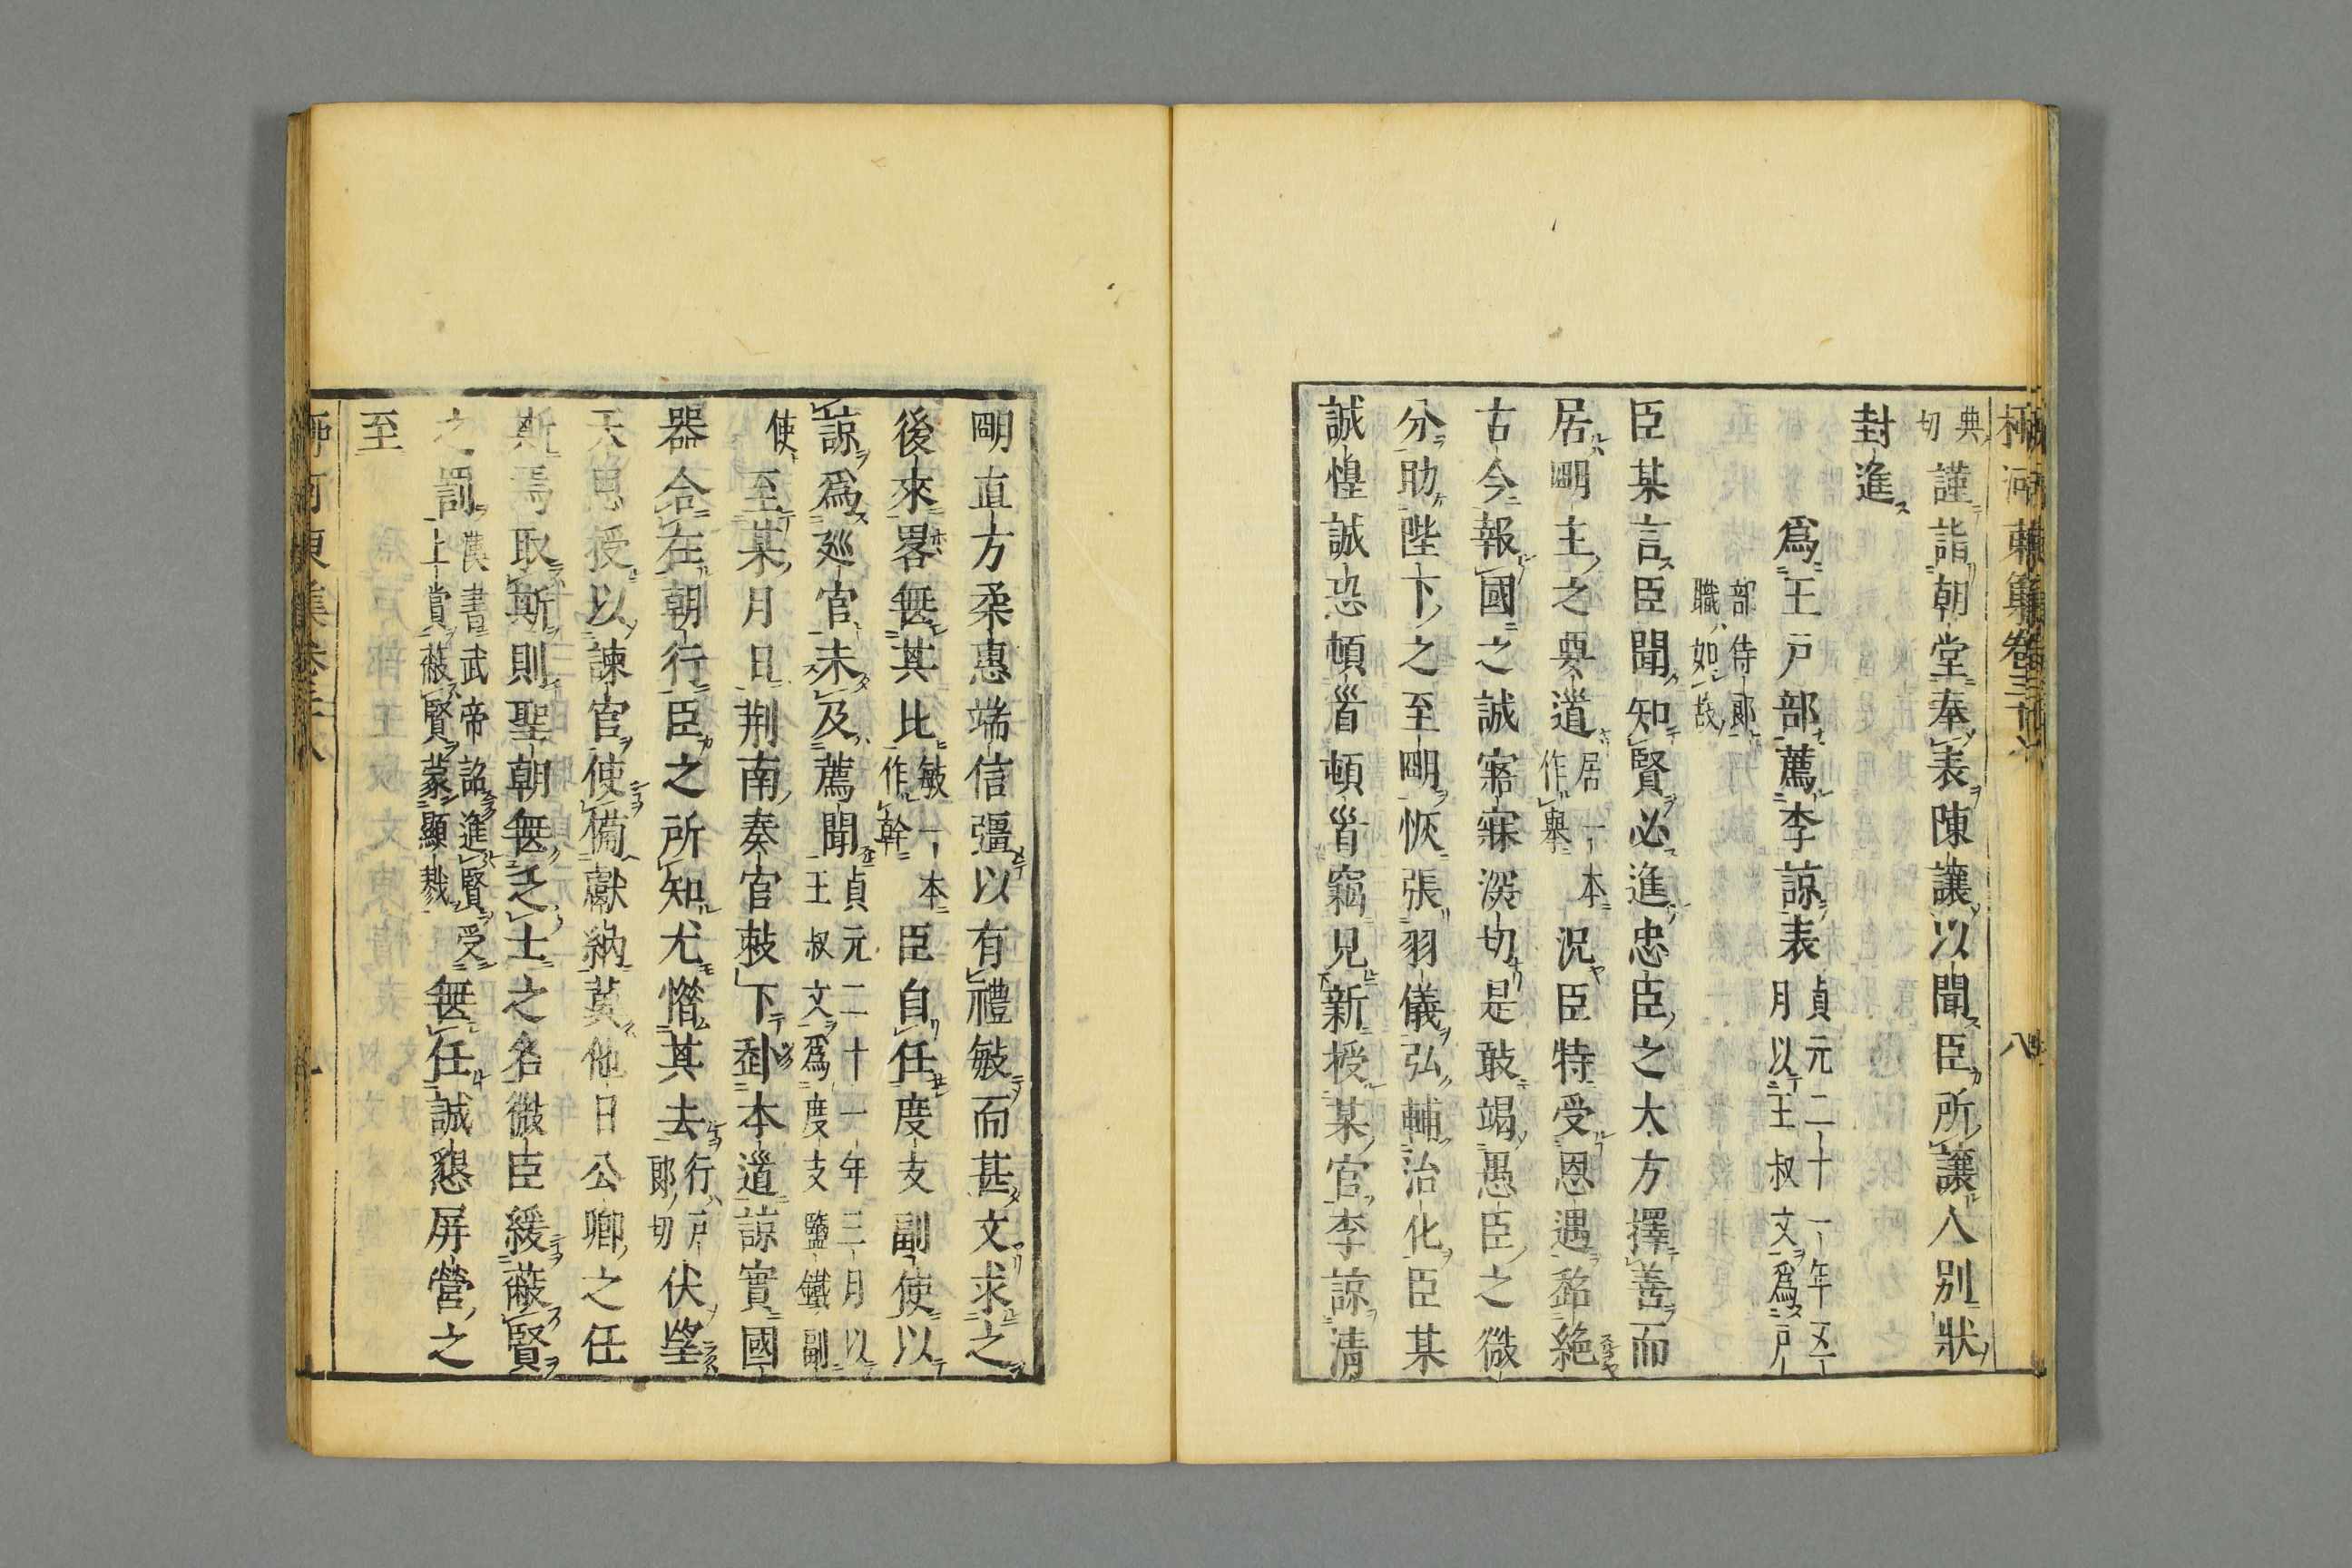 柳河東集卷三十八 八
典切謹詣朝堂奉表陳讓以聞臣所讓人別狀
封進
爲王戶部薦李諒表貞元二十一年五月以王叔文爲戶
部侍郎職如故
臣某言臣聞知賢必進忠臣之大方擇善而
居明主之要道居一本作舉況臣特受恩遇超絶
古今報國之誠寤寐深切是敢竭愚臣之微
分助陛下之至明恢張羽儀弘輔治化臣某
誠惶誠恐頓首頓首竊見新授某官李諒清
明直方柔惠端信彊以有禮敏而甚文求之
後來略無其比敏一本作幹臣自任度支副使以
諒爲巡官未及薦聞貞元二十一年三月以王叔文爲度支鹽鐵副
使至某月日荆南奏官敕下到本道諒實國
器合在朝行臣之所知尤惜其去行戶郎切伏望
天恩授以諫官使備獻納冀他日公卿之任
斯焉取斯則聖朝無乏士之名微臣緩蔽賢
之罰漢書武帝詔進賢受上賞蔽賢蒙顯戮無任誠懇屏營之
至
柳河東集卷三十八